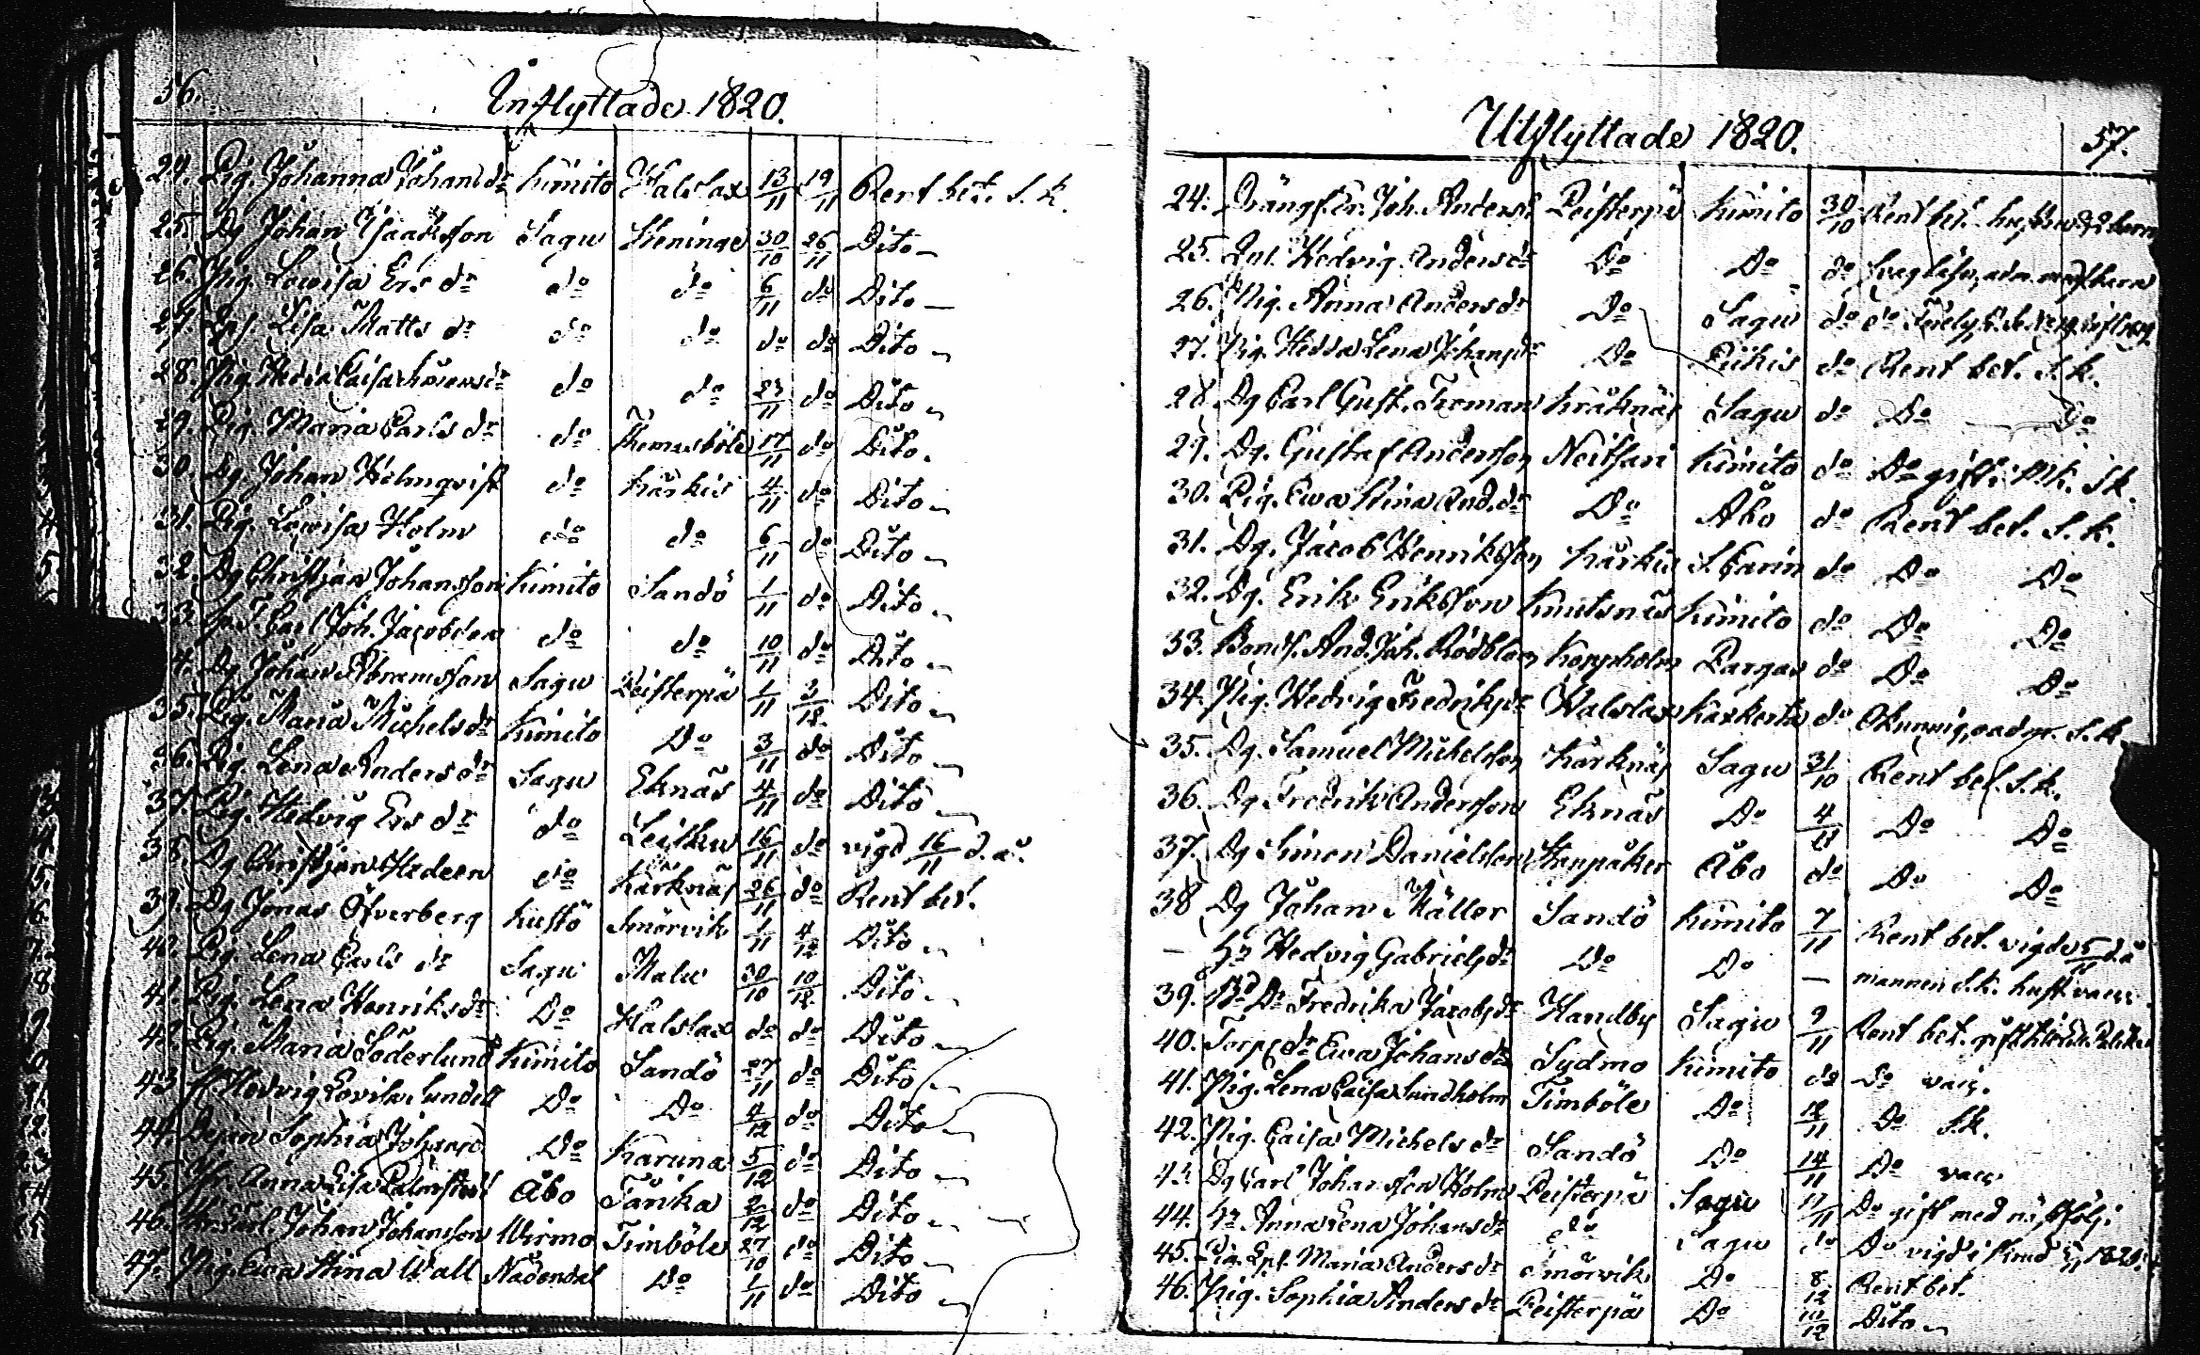 56.
Inflyttade 1820.
24. Pig. Johanna Johans dr Kimito Halslax 13/11 19/11 Rent bet. S. k.
25. Dg Johan Isaaksson Sagu Keninge 30/10 26/11 Dito
26. Pig. Lowisa Ers dr do do 6/11 do Dito
27. Lisa Matts dr do do do do Dito
28. Pig. Caisa dr do do 23/11 do Dito
29. Pig. Maria Carls dr do Themasböle 17/11 do Dito.
30. Dg. Johan Holmqvist do Kärkis 4/11 do Dito
31. Pig. Lowisa Holm do do 6/11 do Dito
32. Dg Christjan Johansson Kimito Sandö 1/11 do Dito
33. Carl Joh. Jacobsson do do 10/11 do Dito
34. Dg Johan Abramsson Sagu Peisterpä 1/11 3/12 Dito
35. Pig. Maria Michels dr Kimito Do 3/11 do Dito
36. Pig. Lena Anders dr Sagu Eknäs 4/11 do Dito
37. Pig. Hedvig Ers dr do Leikku 16/11 do vigd 16/11 d. å.
38. Dg Christjan Hedeen do Kärknäs 26/11 do Rent bet.
39. Dg Jonas Öfverberg Kustö Smörvik 1/11 4/12 Dito
40. Pig. Lena Carls dr Sagu Malu 30/10 10/12 Dito
41. Pig. Lena Henriks dr Do Halslax do do Dito
42. Pig. Maria Söderlund Kimito Sandö 27/11 do Dito
43. Hedvig Lovisa Lundell Do Do 4/12 do Dito
44. Sophia Do Karuna 5/12 do Dito
45. Anna Lisa Åbo Tänika 2/12 do Dito
46. Carl Johan Johansson Wirmo Timböle 27/10 do Dito
47. Pig. Ewa Stina Wall Nådendal Do 1/11 do Dito
Utflyttade 1820.
57.
24. Drängs. Er. Joh. Anderss. Peisterpä Kimito 30/10 Rent bet.
25. Hedvig Anders dr Do Do do
26. Pig. Anna Anders dr Do Sagu do do
27. Pig. Hedda Lena Johans dr Do Piikis do Rent bet. S. k.
28. Dg Carl Gust. Forman Kräknäs Sagu do Do Do
29. Dg. Gustaf Andersson Neitsari Kimito do Do gift: S k.
30. Pig. Ewa Stina And. dr Do Åbo do Rent bet. S. k.
31. Dg. Jacob Henriksson Kärkis S Carin do Do Do
32. Dg. Erik Eriksson Knutsnäs Kimito do Do Do
33. Bonds. And. Joh. Rödblom Korpholm Pargas do Do Do
34. Pig. Hedvig Fredriks dr Halslax Kaskerta do Okunnig, S. k.
35. Dg. Samuel Michelsson Kärknäs Sagu 31/10 Rent bet. S. k.
36. Dg Fredrik Andersson Eknäs Do 4/11 Do Do
37. Dg Simon Danielsson Stenpåker Åbo do Do Do
38 Dg Johan Mäller Sandö Kimito 7/11 Rent bet. vigde 5/11 d å
— Hu Hedvig Gabriels dr Do Do — mannen S. k.
39. Bd Dr Fredrika Jacobs dr Handby Sagu 9/11 Rent bet.
40. Torp dr Ewa Johans dr Sydmo Kimito do Do vacc.
41. Pig. Lena Caisa Sundholm Timböle Do 12/11 Do S. k.
42. Pig. Caisa Michels dr Sandö Do 14/11 Do vacc
43. Dg Carl Johansson Holm Peisterpä Sagu 17/11 Do gift med nästfölj:
44. Hu Anna Lena Johans dr do Sagu do Do vigd
45. Pig. Maria Anders dr Smörvik Do 8/12 Rent bet.
46. Pig. Sophia Anders dr Peisterpä Do 10/12 Dito